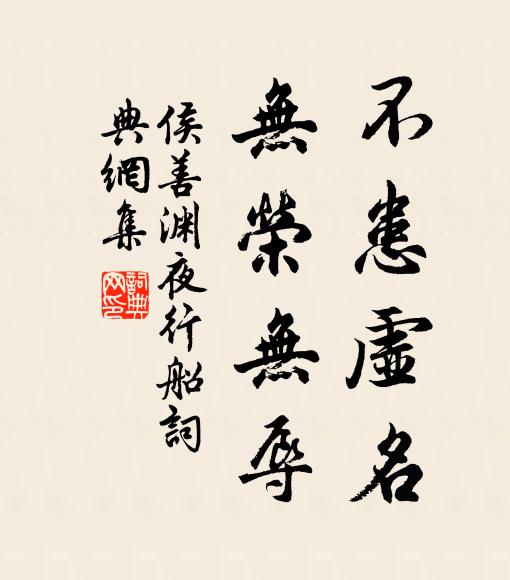 不患虛名
無榮無辱
侯善渊夜行船詞
典網集
詞典
网印